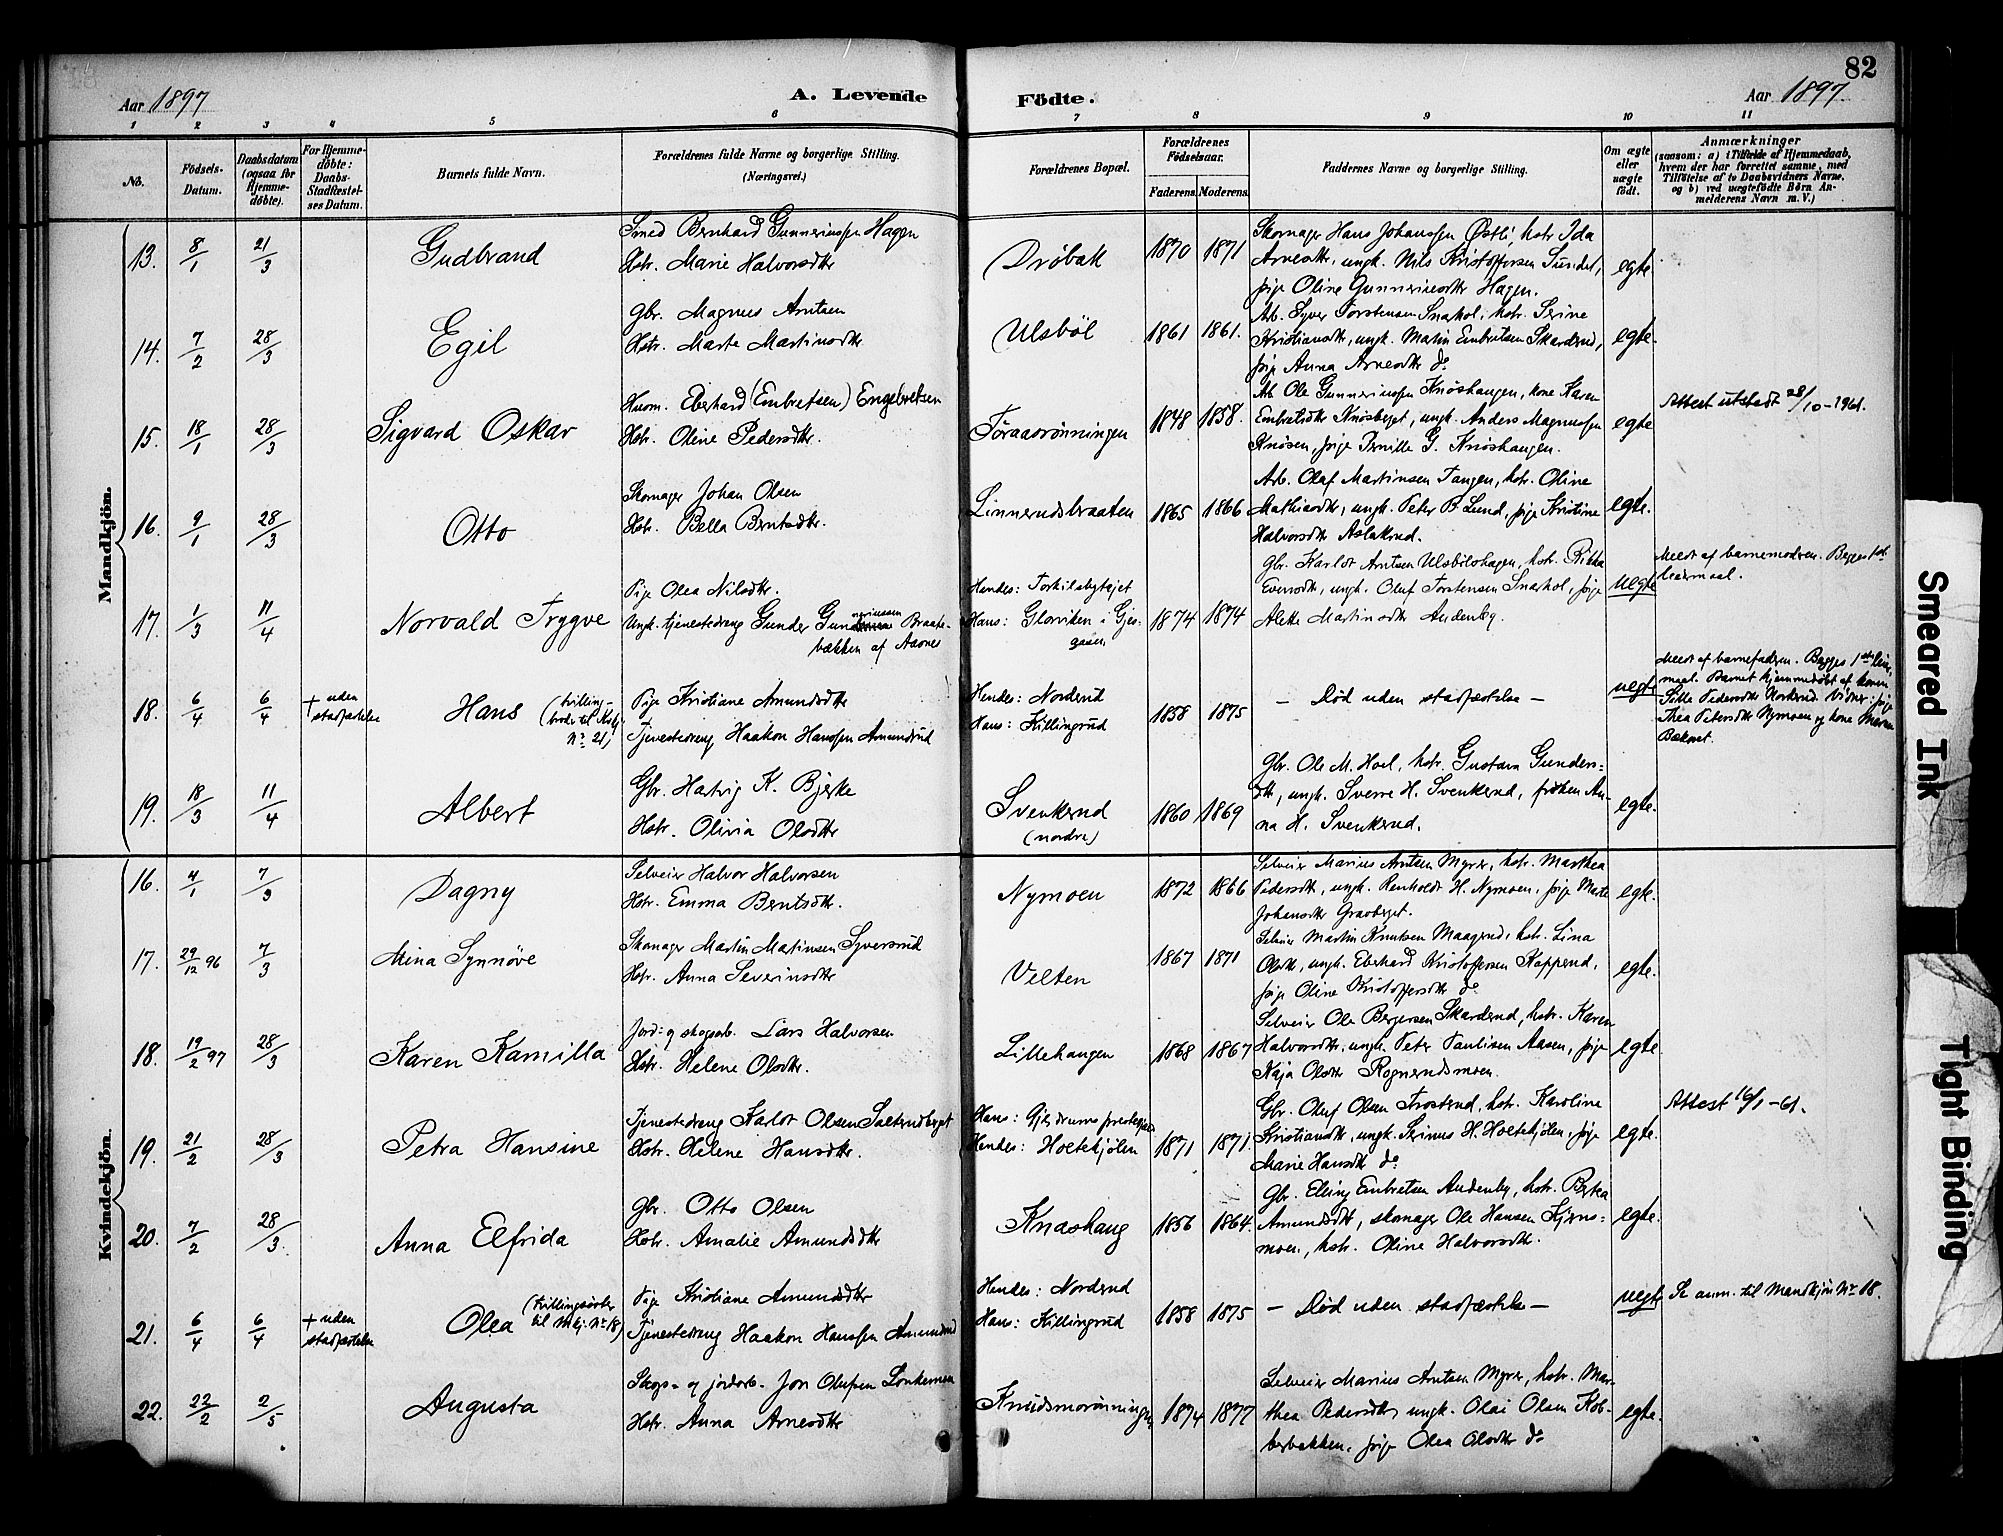 82
Aar 1897
A. Levende
Födte.
Aar 1897
1 2 3 4 5 6 7 8 9 10 11
No.
Födsels-Datum.
Daabsdatum (ogsaa for Hjemme-döbte).
For Hjemme-döbte: Daabs-Stadfæstel-ses Datum.
Barnets fulde Navn.
Forældrenes fulde Navne og borgerlige Stilling.
(Næringsvei.)
Forældrenes Bopæl.
Forældrenes Födselsaar.
Faderens. Moderens.
Faddernes Navne og borgerlige Stilling.
Om ægte eller uægte födt.
Anmærkninger
(saasom: a) i Tilfælde af Hjemmedaab,
hvem der har forrettet samme, med
Tilföielse af to Daabsvidners Navne,
og b) ved uægtefödte Börn An-
melderens Navn m. V.)
Mandkjön.
13. 8/1 21/3 Gudbrand
Smed Bernhard Gunneriussen Hagen
Hstr. Marie Halvorsdtr
Drøbak 1870 1871
Skomager Hans Johanssen Østli, hstr Ida
Arnesdtr, ungk. Nils Kristoffersen Sundet,
pige Oline Gunneriusdtr Hagen.
egte
14. 7/2 28/3 Egil
Gbr. Magnus Arntsen
Hstr. Marte Martinsdtr
Ulsbøl 1861 1861.
Arb. Syver Torstensen Snakol, hstr. Serine
Kristiansdtr, ungk. Martin Embretsen Skarderud,
pige Anna Arnesdtr do
egte.
15. 18/1 28/3 Sigvard Oskar
Husm. Eberhard (Embretsen) Engebretsen
Hstr. Oline Pedersdtr.
Foraasrønningen 1848 1858.
Arb Ole Gunneriussen Knøshaugen, kone Karen
Embretsdtr Knøsberget, ungk. Anders Magnussen
Knøsen, pige Pernille G. Knøshaugen.
egte
Attest utstedt 28/10-1961.
16. 9/1 28/3 Otto
Skomager Johan Olsen
Hstr. Bella Berntsdtr.
Linnerudsbraaten 1865 1866
Arb. Olaf Martinsen Tangen, hstr. Oline
Mathiasdtr, ungk. Peter B. Lund, pige Kristine
Halvorsdtr Aslakrud.
egte.
17. 1/3 11/4 Norvald Trygve
Pige Olea Nilsdtr.
Ungk. tjenestedreng Gunder Gunneriussen Braate-
bækken af Aasnes
Hendes: Torkilsbytejet
Hans: Glorviken i Gjes-
aasen
1874 1874
Gbr. Karlot Arntsen Ulsbølshagen, hstr. Rikka
Evensdtr, ungk. Oluf Torstensen Snakol, pige
Alette Martinsdtr Audenby.
uegte
Meldt af barnemoderen. Begges 1ste
leiermaal.
18. 6/4 6/4 † uden stadfæstelse
Hans (tvilling-
broder til Kvkj.
No 21)
Pige Kristiane Amundsdtr
Tjenestedreng Haakon Hanssen Amundrud
Hendes: Norderud
Hans: Killingrud
1858 1875
- Død uden stadfæstelse -
uegte
Meldt af barnefaderen. Begges 1ste leier-
maal. Barnet hjemmedøbt af kone
Pedersdtr Norderud. Vidner: pige
Thea Petersdtr Nymoen og kone Maren
19. 18/3 11/4 Albert
Gbr. Hartvig K. Bjerke
Hstr. Olivia Olsdtr
Svenkerud
(nordre)
1860 1869
Gbr. Ole M. Hoel, hstr. Gustava Gunders-
dtr, ungk. Sverre H. Svenkerud, frøken An-
na H. Svenkerud.
egte.
Kvindekjön.
16. 4/1 7/3 Dagny
Selveier Halvor Halvorsen
Hstr. Emma Berntsdtr.
Nymoen 1872 1866
Selveier Marius Arntsen Myrer, hstr. Marthea
Pedersdtr, ungk. Renholdt H. Nymoen, pige Marte
Johansdtr Graaberget.
egte.
17. 29/12 96 7/3 Mina Synnøve
Skomager Martin Martinsen Syversrud
Hstr. Anna Severinsdtr
Velten 1867 1871
Selveier Martin Knutsen Maagerud, hstr. Lina
Olsdtr, ungk. Eberhard Kristoffersen Kapperud,
pige Oline Kristoffersdtr do
egte.
18. 19/2 97 28/3 Karen Kamilla
Jord- og skogsarb. Lars Halvorsen
Hstr. Helene Olsdtr.
Lillehaugen 1868 1867
Selveier Ole Bergersen Skarderud, hstr. Karen
Halvorsdtr, ungk. Peter Paulsen Aasen, pige
Kaja Olsdtr Rognerudsmoen.
egte.
19. 21/2 28/3 Petra Hansine
Tjenestedreng Karlot Olsen Sæterudberget
Hstr. Helene Hansdtr.
Hans: Gjerdrums prestegjeld
Hendes: Holtekjølen
1871 1871.
Gbr. Oluf Olsen Trosterud, hstr. Karoline
Kristiansdtr, ungk. Serinus H. Holtekjølen, pige
Marie Hansdtr do
egte.
Attest 16/1-61.
20. 7/2 28/3. Anna Elfrida
Gbr. Otto Olsen
Hstr. Amalie Amundsdtr
Knashaug 1856 1864.
Gbr. Elling Embretsen Audenby, hstr. Berta
Amundsdtr, skomager Ole Hansen Kjerns-
moen, hstr. Oline Halvorsdtr.
egte.
21. 6/4 6/4 † uden stadfæstelse
Olea (tvillingsøster
til Mkj. No 18)
Pige Kristiane Amundsdtr
Tjenestedreng Haakon Hanssen Amundrud
Hendes: Norderud
Hans: Killingrud
1858 1875
- Død uden stadfæstelse -
uegte
Se anm. til Mandkjøn No 18.
22. 22/2 2/5 Augusta
Skogs- og jordarb. Jon Olufsen Lonkemoen
Hstr. Anna Arnesdtr
Knudsmorønningen 1874 1877
Selveier Marius Arntsen Myrer, hstr. Mar-
thea Pedersdtr, ungk. Olai Olsen Kol-
berbakken, pige Olea Olsdtr do
egte.
Smeared Ink
Tight Binding